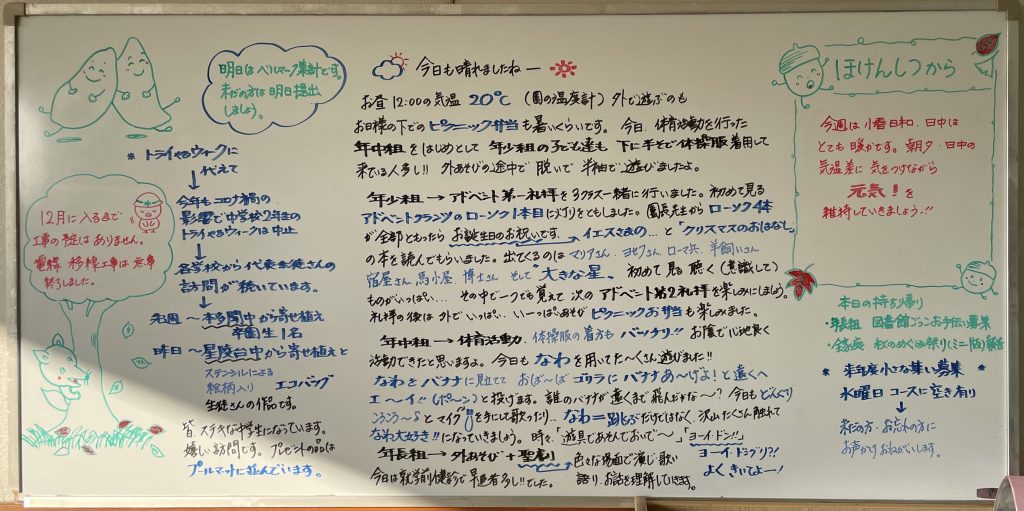 明日はベルマーク集計です。
未だの方は明日提出
しましょう。
※ トライやるウィークに
代えて
↓
今年もコロナ禍の
影響で中学校2年生の
トライやるウィークは中止
↓
各学校から代表生徒さんの
訪問が続いています。
↓
来週 〜本多聞中から寄せ植え
卒園生1名
昨日 〜星陵台中から寄せ植えと
ステンシルによる
絵柄入り エコバッグ
生徒さんの作品です。
皆 ステキな中学生になっています。
嬉しい訪問です。プレゼントの品は
プールマットに並んでいます。
12月に入るまで
工事の予定はありません。
電線 移線工事は 無事
終了しました。
今日も晴れましたねー
お昼 12:00の気温 20℃ (園の温度計) 外で遊ぶのも
お日様の下でのピクニック弁当も暑いくらいです。今日、体育活動を行った
年中組をはじめとして 年少組の子ども達も 下に半そで体操服着用して
来ている人多し!! 外あそびの途中で 脱いで 半袖で遊びましたよ。
年少組 → アドベント第一礼拝を3クラス一緒に行いました。初めて見る
アドベントクランツのローソク1本目に灯りをともしました。園長先生から ローソク4本
が全部ともったら お誕生日のお祝いです。 イエスさまの…と "クリスマスのおはなし"
の本を読んでもらいました。出てくるのは マリアさん、ヨセフさん、ローマ兵、羊飼いさん
宿屋さん、馬小屋、博士さん そして"大きな星"。初めて見る 聴く(意識して)
ものがいっぱい… その中で一つでも覚えて 次のアドベント第2礼拝を楽しみにしましょう。
礼拝の後は 外でいっぱい…いーっぱいあそび ピクニックお弁当も楽しみました。
年中組 → 体育活動、体操服の着方も バッチリ!! お陰で心地良く
活動できたと思いますよ。今日も なわ を用いてた〜くさん遊びました!!
なわをバナナに見立て おばーばゴリラに バナナあ〜げよ! と遠くへ
エーイ!! (ポーン)と投げます。誰のバナナが遠くまで飛んだかな〜? 今日もどんぐり
ころころ〜♪とマイク を手にして歌ったり… なわ=跳ぶだけではなく、沢山たくさん触れて
なわ大好き!! になっていきましょう。時々「遊具であそんでおいで〜」「ヨーイ・ドン!!」
年長組 → 外あそび+聖劇 色々な場面で演じ・歌い ヨーイ・ドラブリ?!
今日は就学前健診で 早退者多し!! でした。 語り、お話を理解していきます。 よくきいてよー!
ほけんしつから
今週は 小春日和、日中は
とても 暖かです。朝夕・日中の
気温差に 気をつけながら
元気!を
維持していきましょう!!
本日の持ち帰り
・年長組 図書館ごっこお手伝い募集
・全家庭 秋のめぐみ祭り(ミニ版)報告
※ 来年度小さな集い募集 ※
水曜日 コースに空き有り
↓
未だの方・お忘れの方に
お声かけ おねがいします。